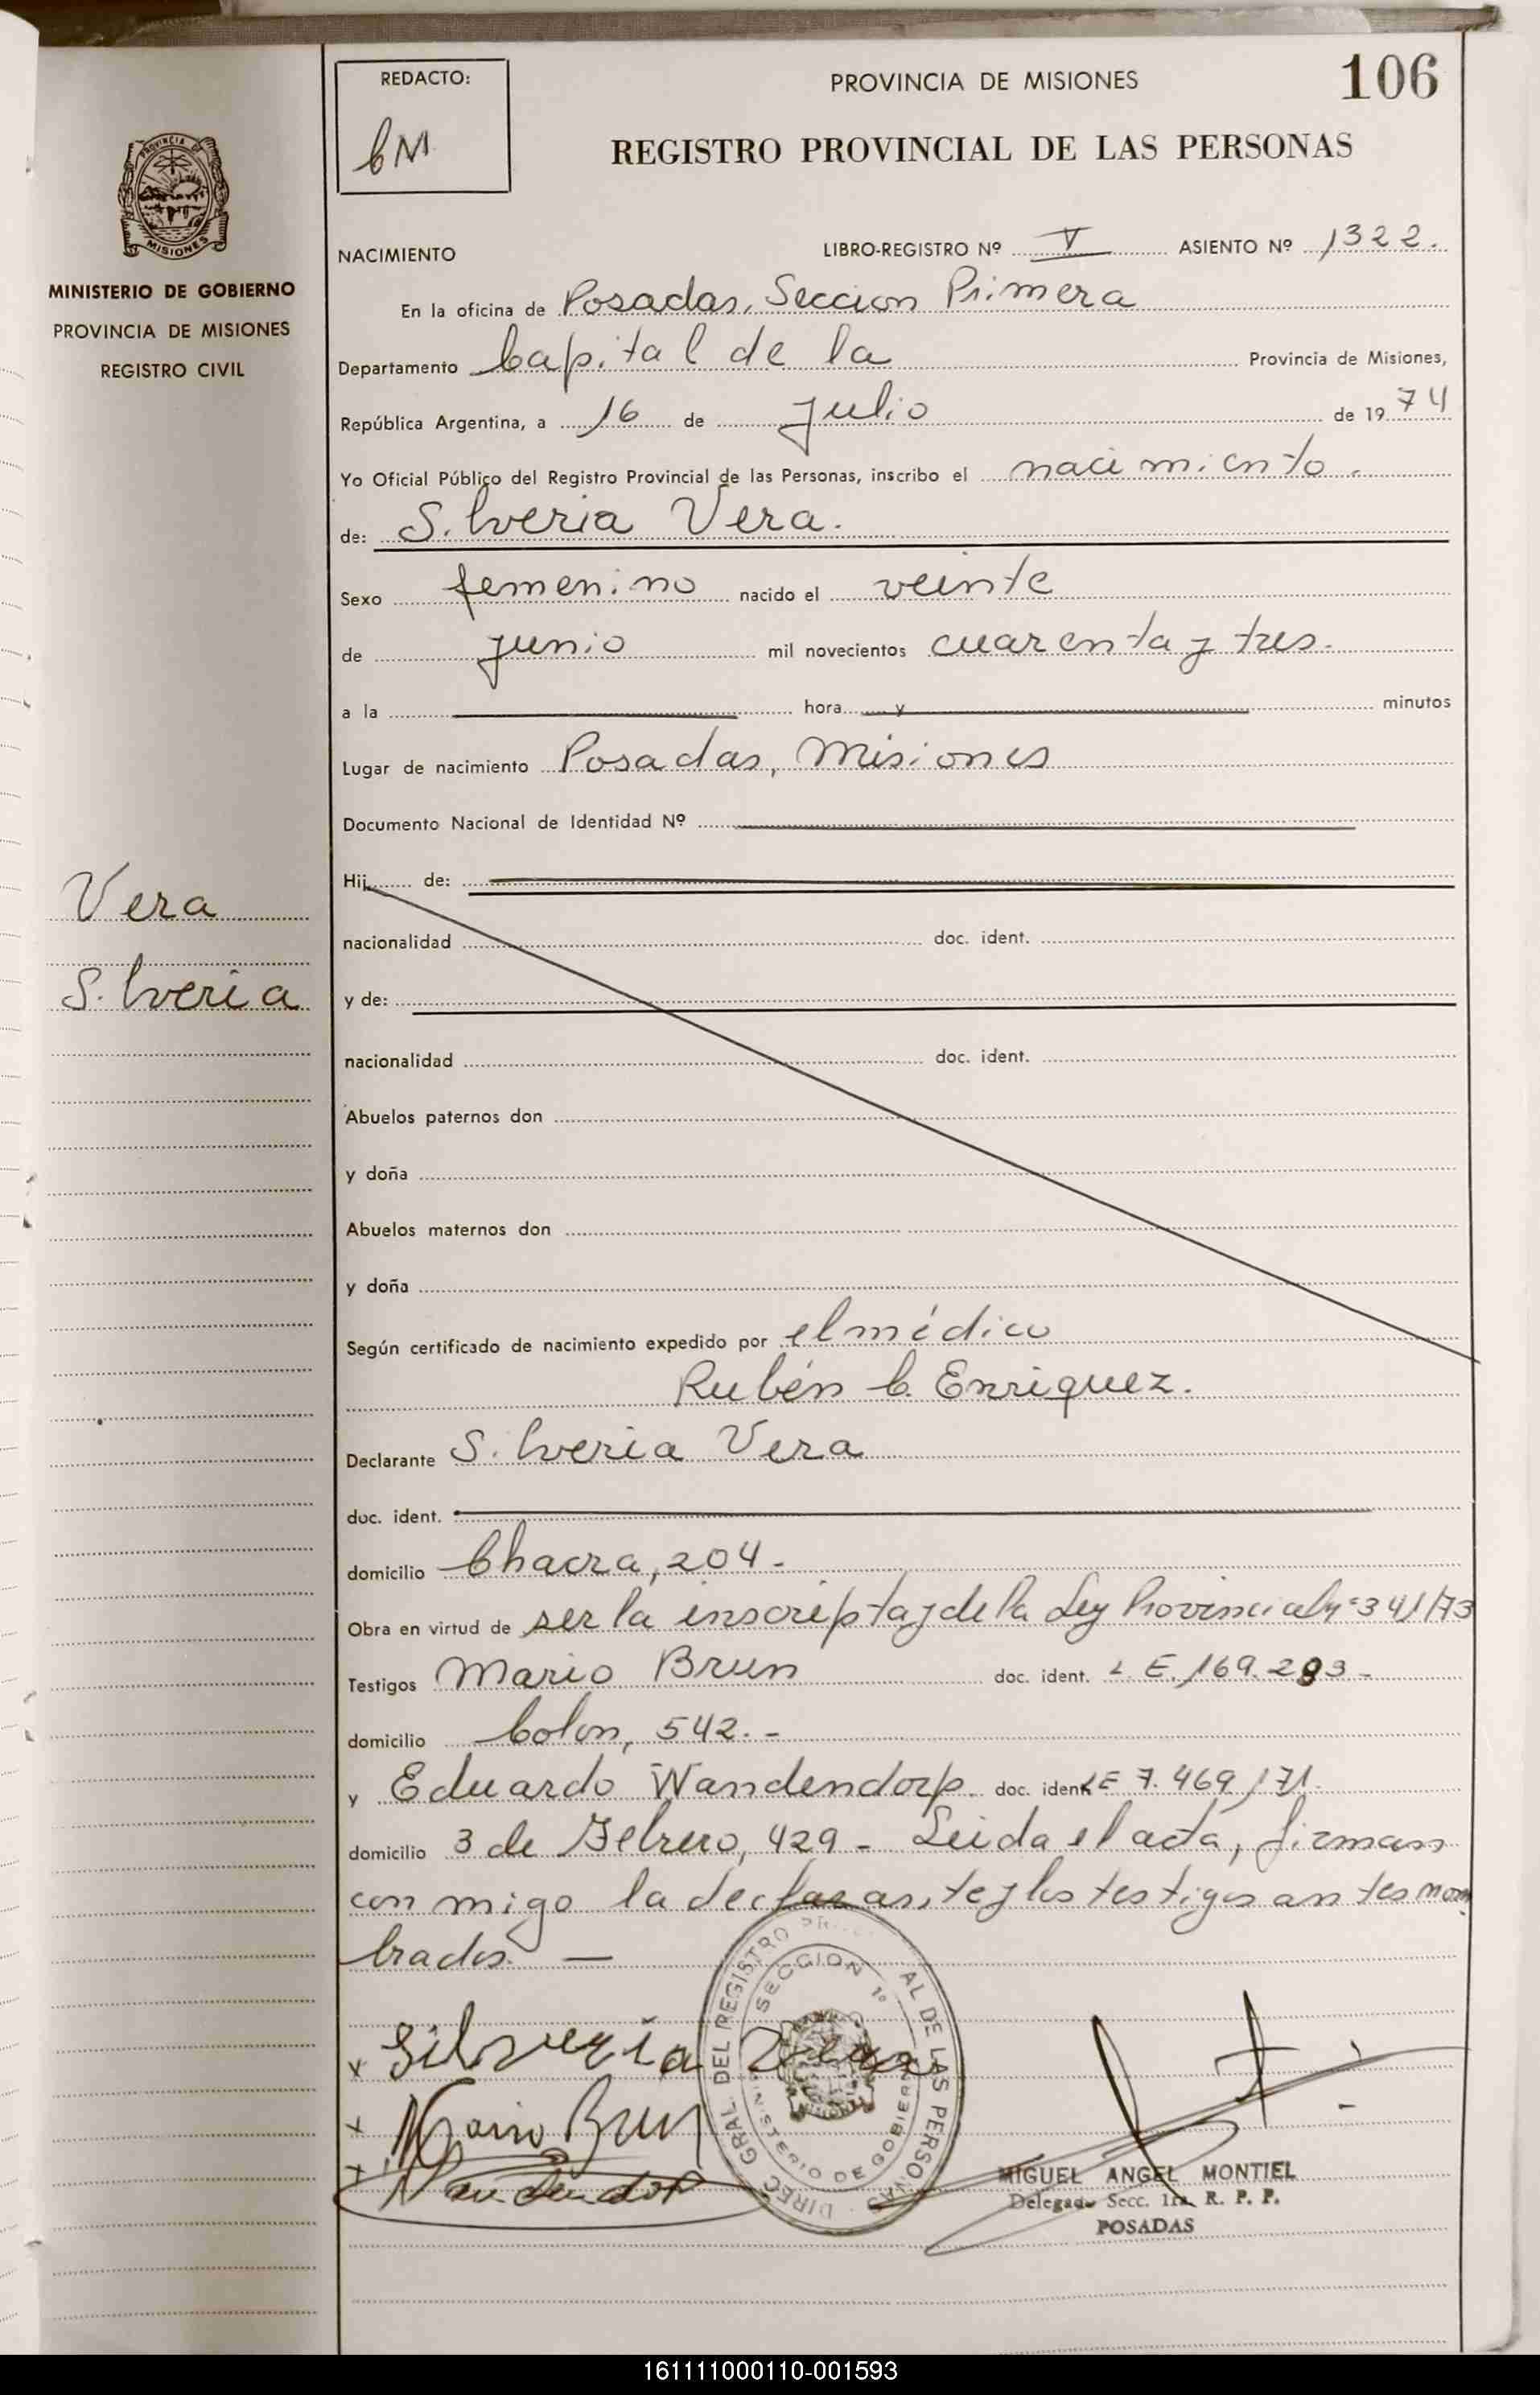 REDACTO:
CM
PROVINCIA DE MISIONES
106
REGISTRO PROVINCIAL DE LAS PERSONAS
PROVINCIA DE MISIONES
MINISTERIO DE GOBIERNO
PROVINCIA DE MISIONES
REGISTRO CIVIL
Vera
Silveria
NACIMIENTO LIBRO-REGISTRO Nº V ASIENTO Nº 1322.
En la oficina de Posadas, Seccion Primera
Departamento Capital de la Provincia de Misiones,
República Argentina, a 16 de julio de 1974
Yo Oficial Público del Registro Provincial de las Personas, inscribo el nacimiento.
de: Silveria Vera.
Sexo femenino nacido el veinte
de junio mil novecientos cuarenta y tres.
a la hora y minutos
Lugar de nacimiento Posadas, Misiones
Documento Nacional de Identidad Nº
Hij de:
nacionalidad doc. ident.
y de:
nacionalidad doc. ident.
Abuelos paternos don
y doña
Abuelos maternos don
y doña
Según certificado de nacimiento expedido por el médico
Rubén C. Enriquez.
Declarante Silveria Vera
doc. ident.
domicilio Chacra, 204-
Obra en virtud de ser la inscripta y de la Ley Provincial nº 341/73
Testigos Mario Brun doc. ident. L.E. 169.293-
domicilio Colon, 542.-
y Eduardo Wandendorp doc. ident. LE 7.469.171.
domicilio 3 de Febrero, 429- Leida el acta, firman
con migo la declarante y los testigos antes nom
brados. —
x Silveria Vera
x Mario Brun
x Wandendorp
DIREC. GRAL. DEL REGISTRO PR AL DE LAS PERSONAS
SECCION 1º
MINISTERIO DE GOBIERNO
MISIONES
MIGUEL ANGEL MONTIEL
Delegado Secc. 1ra. R. P. P.
POSADAS
161111000110-001593